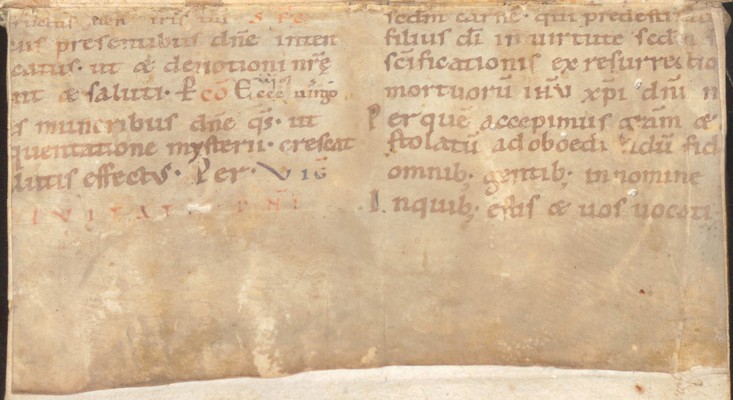 eis presentibus dn̄e inten
catus· ut & deuotioni nr̄ę
nt & saluti· Rcō Ecce uirgo
s muneribus dn̄e qs̄· ut
quentatione mysterii· crescat
lutis effectus· Per· VIG
secdm̄ carnē· qui predesti
filius dī in uirtute secdm̄
scīficationis ex resurrectio
mortuorū ihū xp̄i dn̄i n
Per quē accepimus grām &
stolatū ad oboedi dū fid
omnib; gentib; in nomine
Inquib; estis & uos uocati·